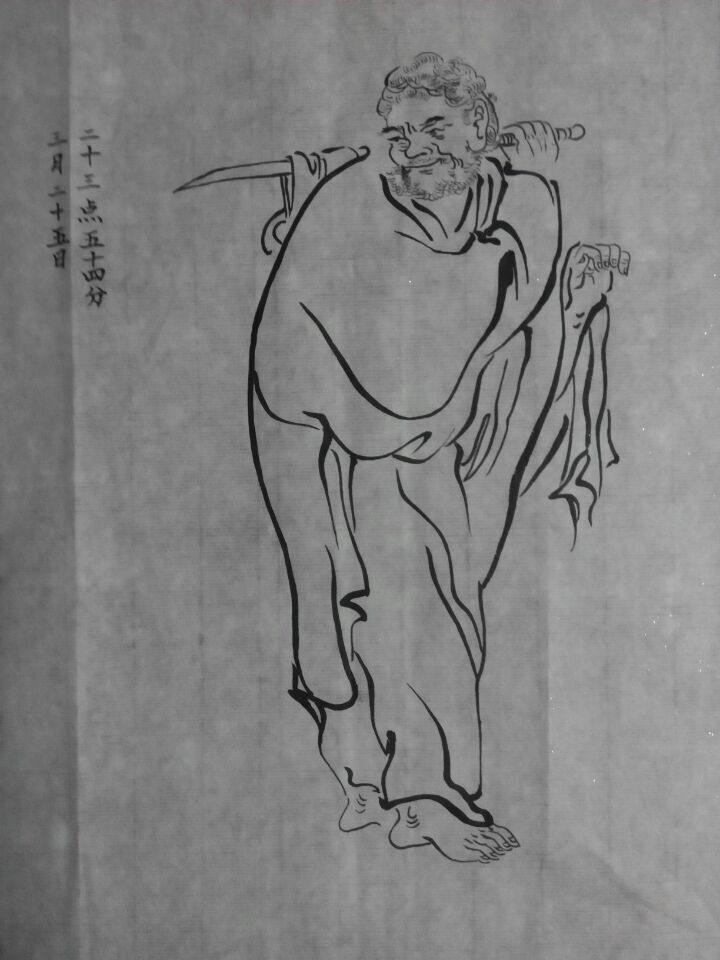 二十三点五十四分
三月二十五日